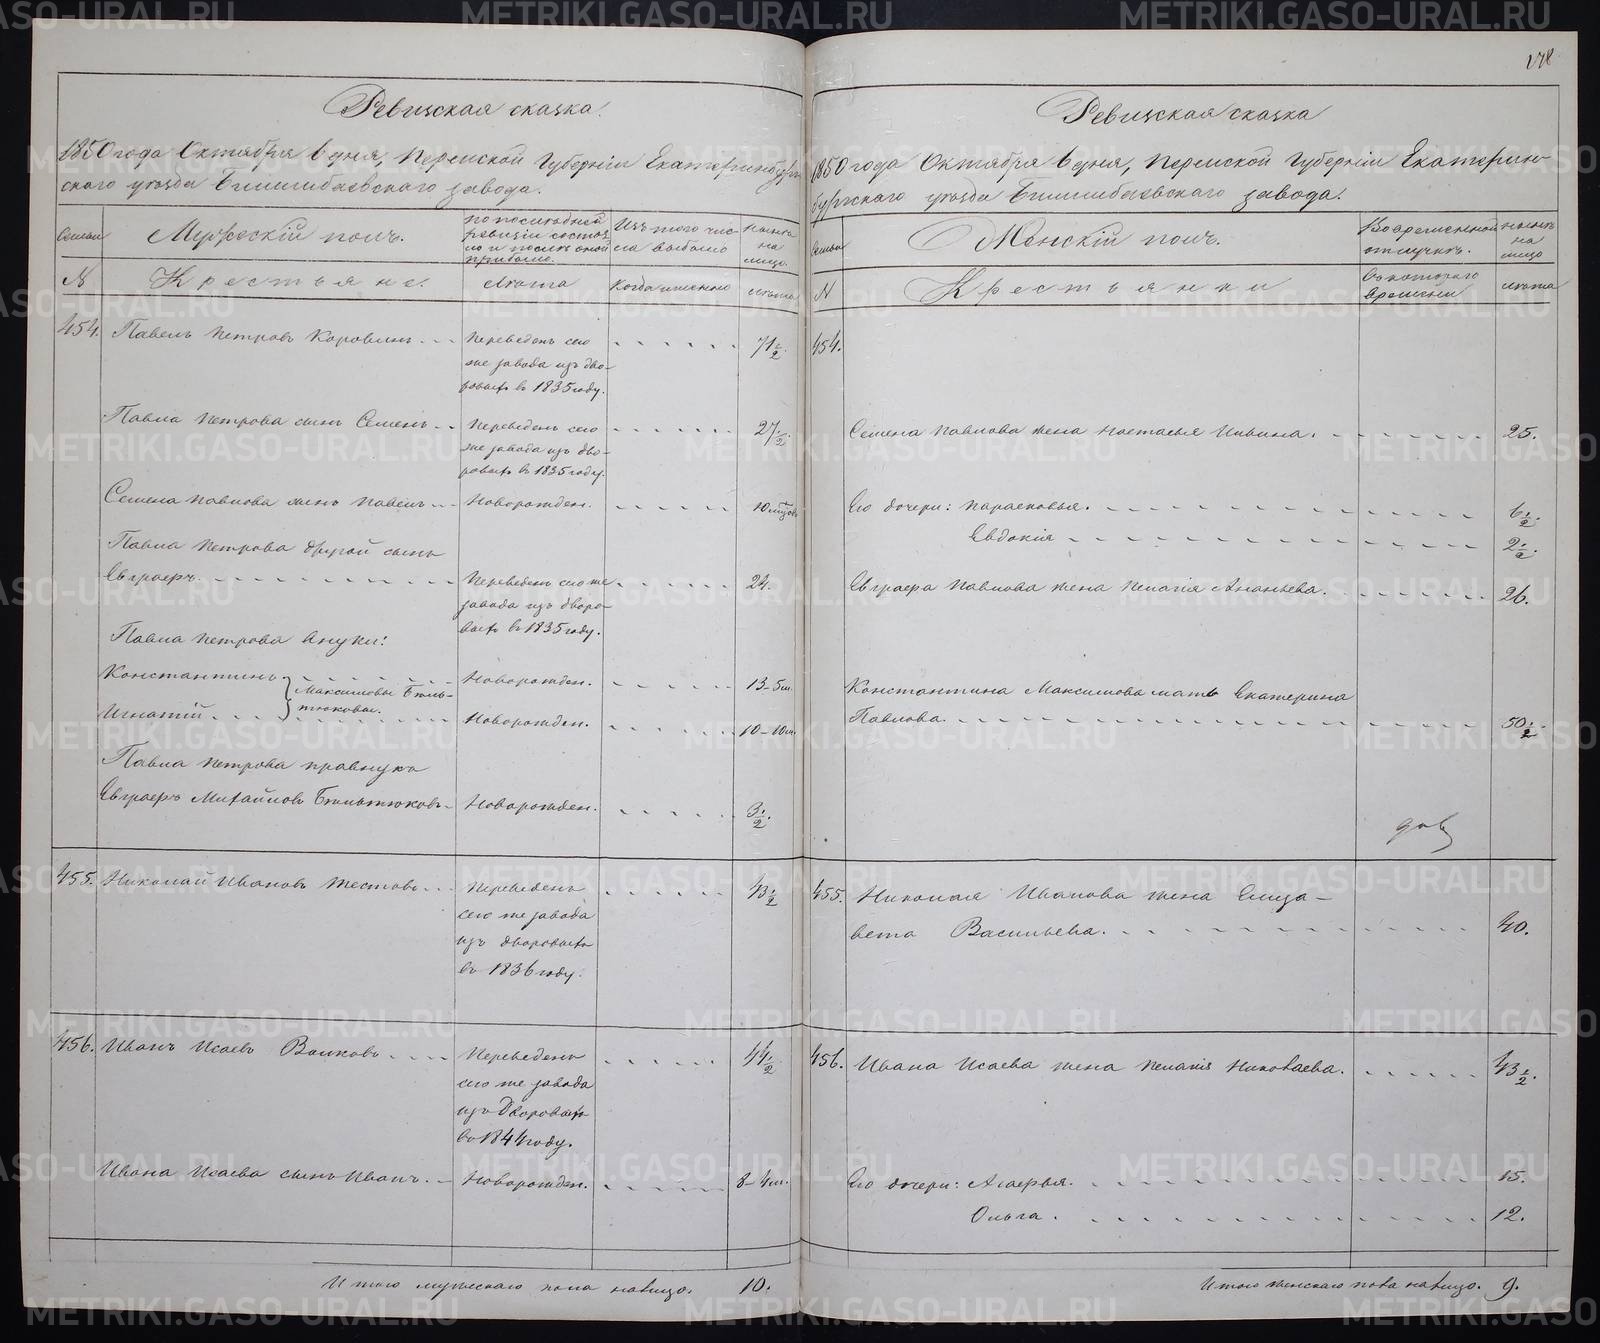 178
Ревизская сказка.
1850 года Октября 6 дня, Пермской Губернiи Екатеринбург-
скаго уѣзда Билимбаевскаго завода.
Семьи
Мужескiй полъ.
По последней
ревизiи состоя
ло и после оной
прибыло.
Изъ того чис-
ла выбыло
Нынѣ
на
лицо.
N
Крестьяне.
Лѣта
Когда именно
Лѣта
454. Павелъ Петровъ Коровинъ
Переведенъ сего
же завода изъ дво-
ровыхъ въ 1835 году.
71 1/2.
Павла Петрова сынъ Семенъ
Переведенъ сего
же завода изъ дво-
ровыхъ въ 1835 году.
27 1/2.
Семена Павлова сынъ Павелъ
Новорожден.
10 мѣсяцовъ
Павла Петрова другой сынъ
Евграфъ
Переведенъ сего же
завода изъ дворо-
выхъ въ 1835 году.
24.
Павла Петрова внуки:
Константинъ
Максимовы Бѣль-
тюковы.
Новорожден.
13-5 м.
Игнатiй
Новорожден.
10-10 м.
Павла Петрова правнукъ
Евграфъ Михайловъ Бѣльтюковъ
Новорожден.
3 1/2.
455. Николай Ивановъ Шестовъ
Переведенъ
сего же завода
изъ дворовыхъ
въ 1836 году.
43 1/2
456. Иванъ Исаевъ Волковъ
Переведенъ
сего же завода
изъ Дворовыхъ
въ 1844 году.
44 1/2
Ивана Исаева сынъ Иванъ.
Новорожден.
8-4 м.
Итого мужескаго пола налицо. 10.
Ревизская сказка
1850 года Октября 6 дня, Пермской Губернiи Екатерин-
бургскаго уѣзда Билимбаевскаго завода.
Семьи
Женскiй полъ.
Во временной
отлучкѣ.
Нынѣ
на
лицо
N
Крестьянки
Съ котораго
времени
Лѣта
454.
Семена Павлова жена Настасья Ильина. 25.
Его дочери: Парасковья. 6 1/2.
Евдокiя 2 1/2.
Евграфа Павлова жена Пелагiя Ананьева. 26.
Константина Максимова мать Екатерина
Павлова. 50 1/2.
455. Николая Иванова жена Елиза-
вета Васильева. 40.
456. Ивана Исаева жена Пелагiя Николаева. 43 1/2.
Его дочери: Агафья. 15.
Ольга. 12.
Итого женскаго пола налицо. 9.
METRIKI.GASO-URAL.RU